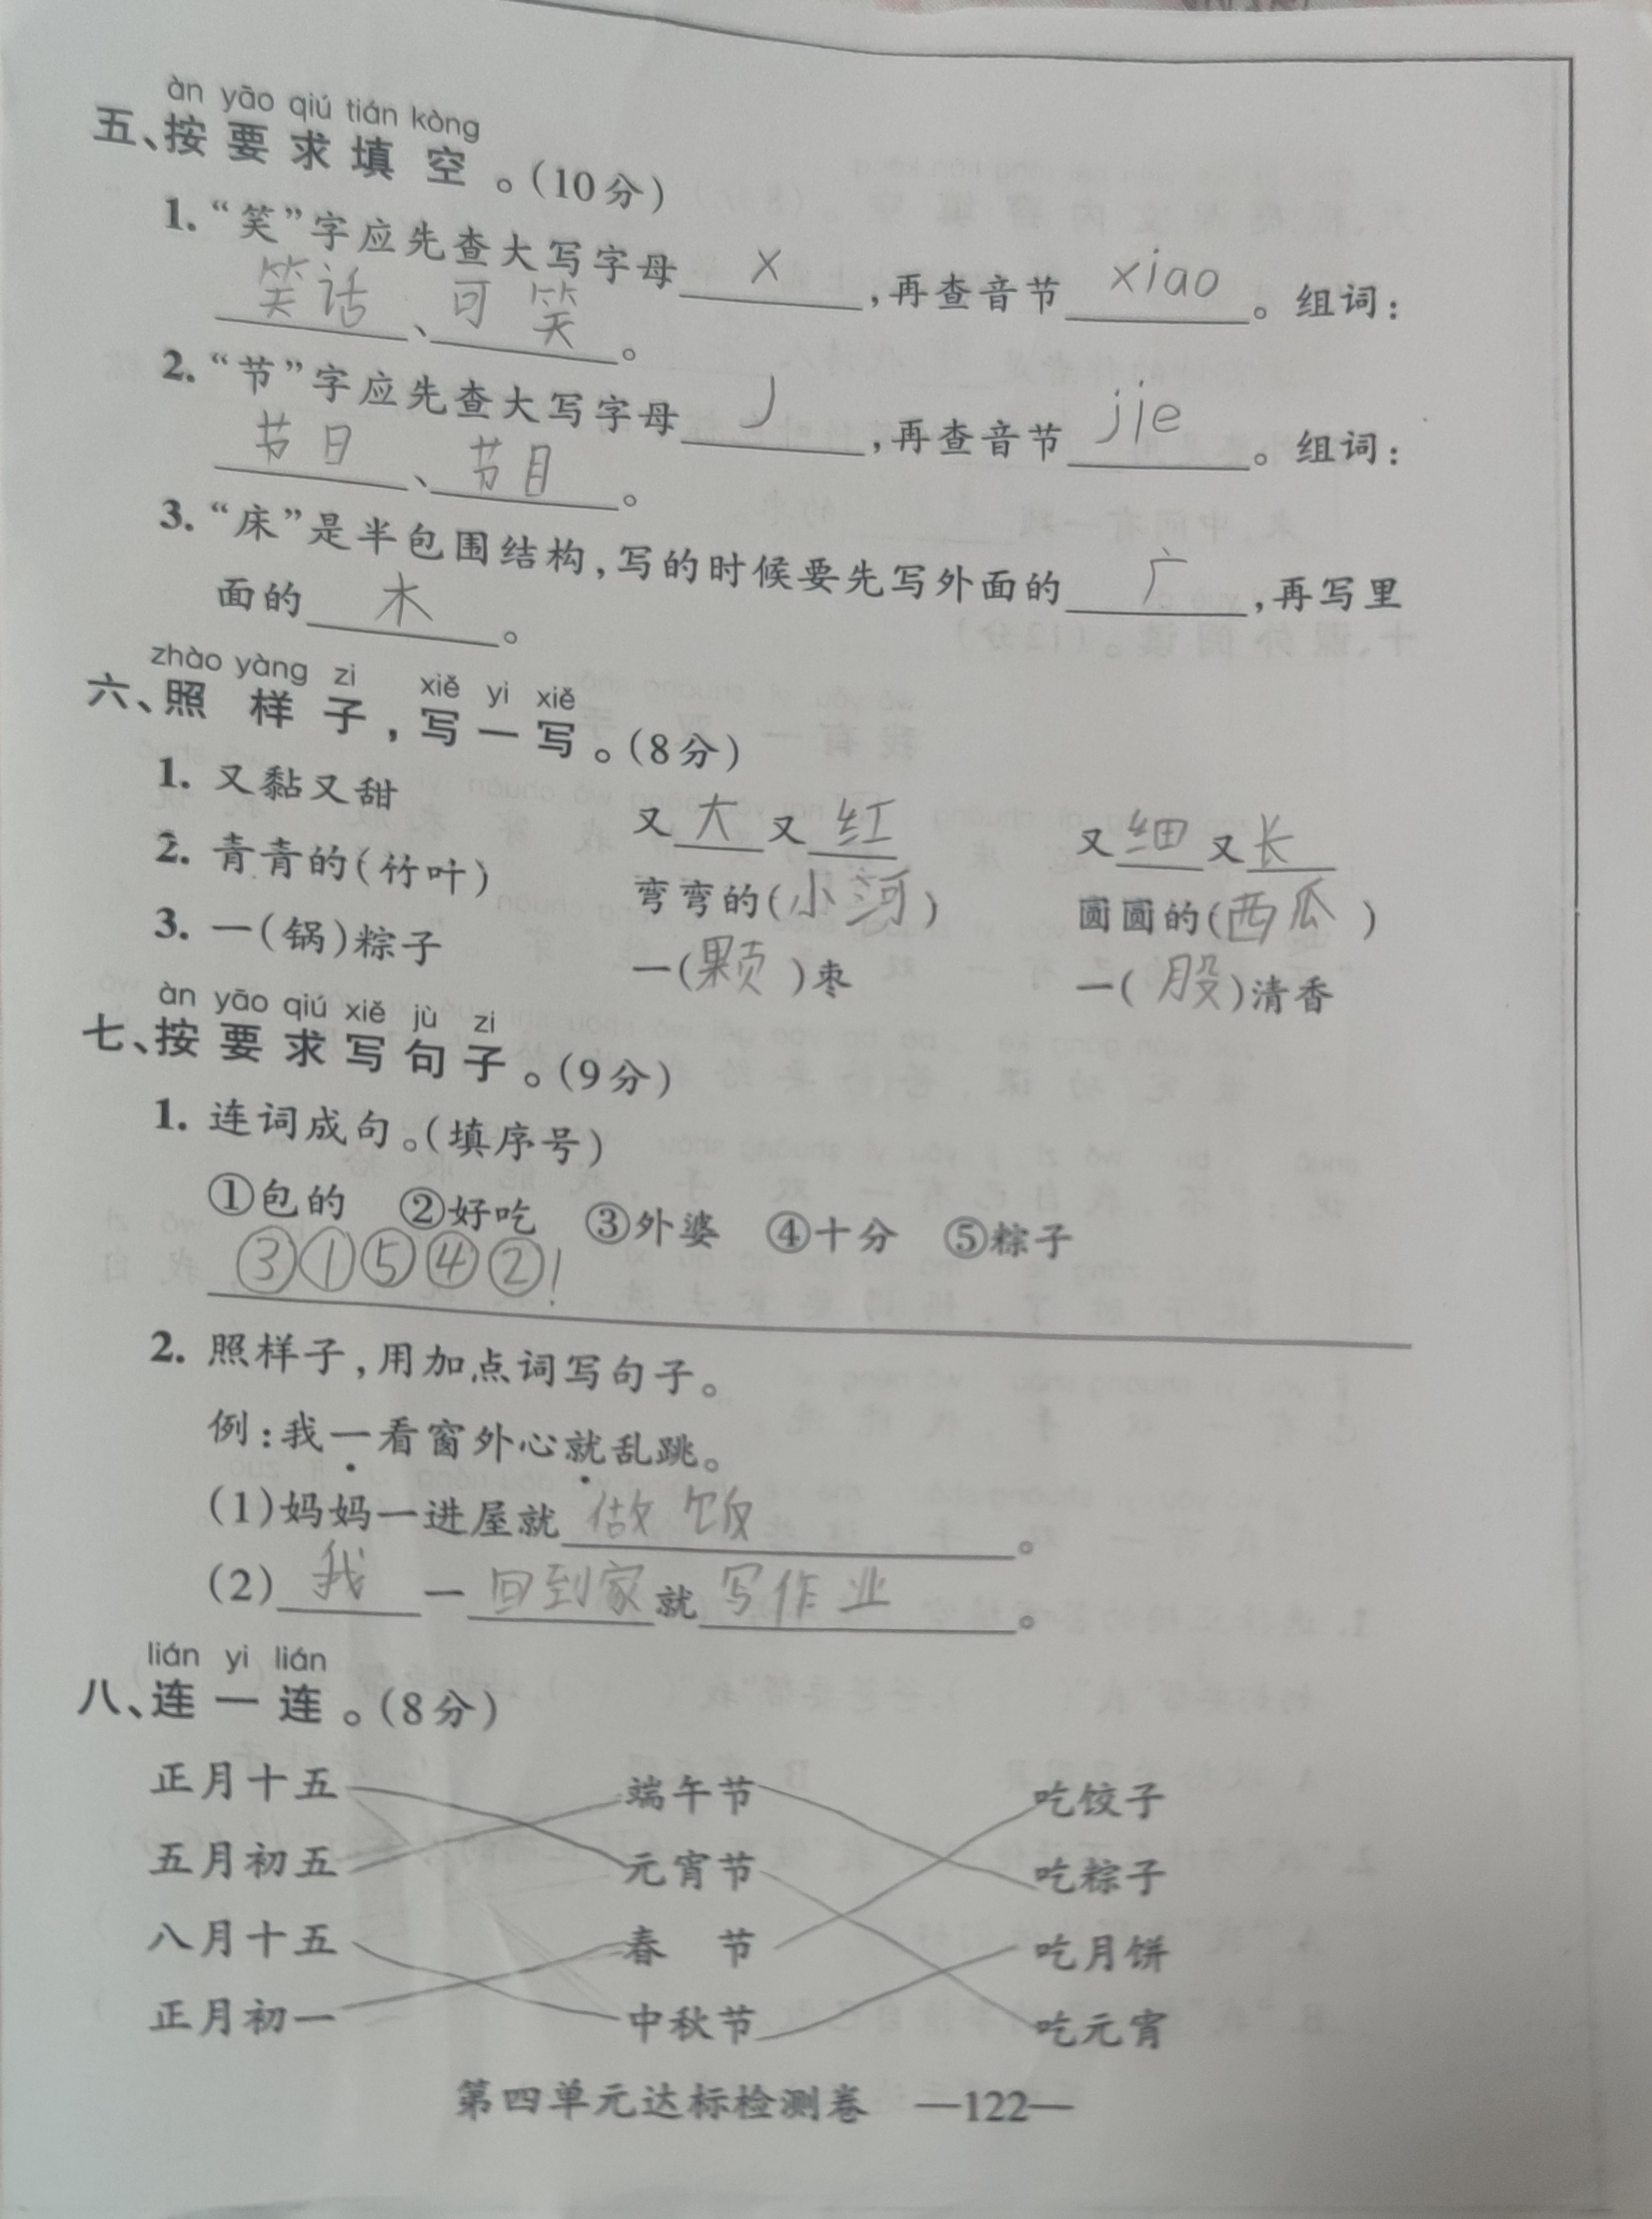 àn yāo qiú tián kòng
五、按要求填空。(10分)
1. “笑”字应先查大写字母 X ,再查音节 xiao 。组词:
笑话 、 可笑 。
2. “节”字应先查大写字母 J ,再查音节 jie 。组词:
节日 、 节目 。
3. “床”是半包围结构,写的时候要先写外面的 广 ,再写里
面的 木 。
zhào yàng zi xiě yi xiě
六、照样子,写一写。(8分)
1. 又黏又甜 又 大 又 红 又 细 又 长
2. 青青的(竹叶) 弯弯的(小河) 圆圆的(西瓜)
3. 一(锅)粽子 一(颗)枣 一(股)清香
àn yāo qiú xiě jù zi
七、按要求写句子。(9分)
1. 连词成句。(填序号)
①包的 ②好吃 ③外婆 ④十分 ⑤粽子
③①⑤④②!
2. 照样子,用加点词写句子。
例:我一看窗外心就乱跳。
(1)妈妈一进屋就 做饭 。
(2) 我 一 回到家 就 写作业 。
lián yi lián
八、连一连。(8分)
正月十五 端午节 吃饺子
五月初五 元宵节 吃粽子
八月十五 春 节 吃月饼
正月初一 中秋节 吃元宵
第四单元达标检测卷 —122—